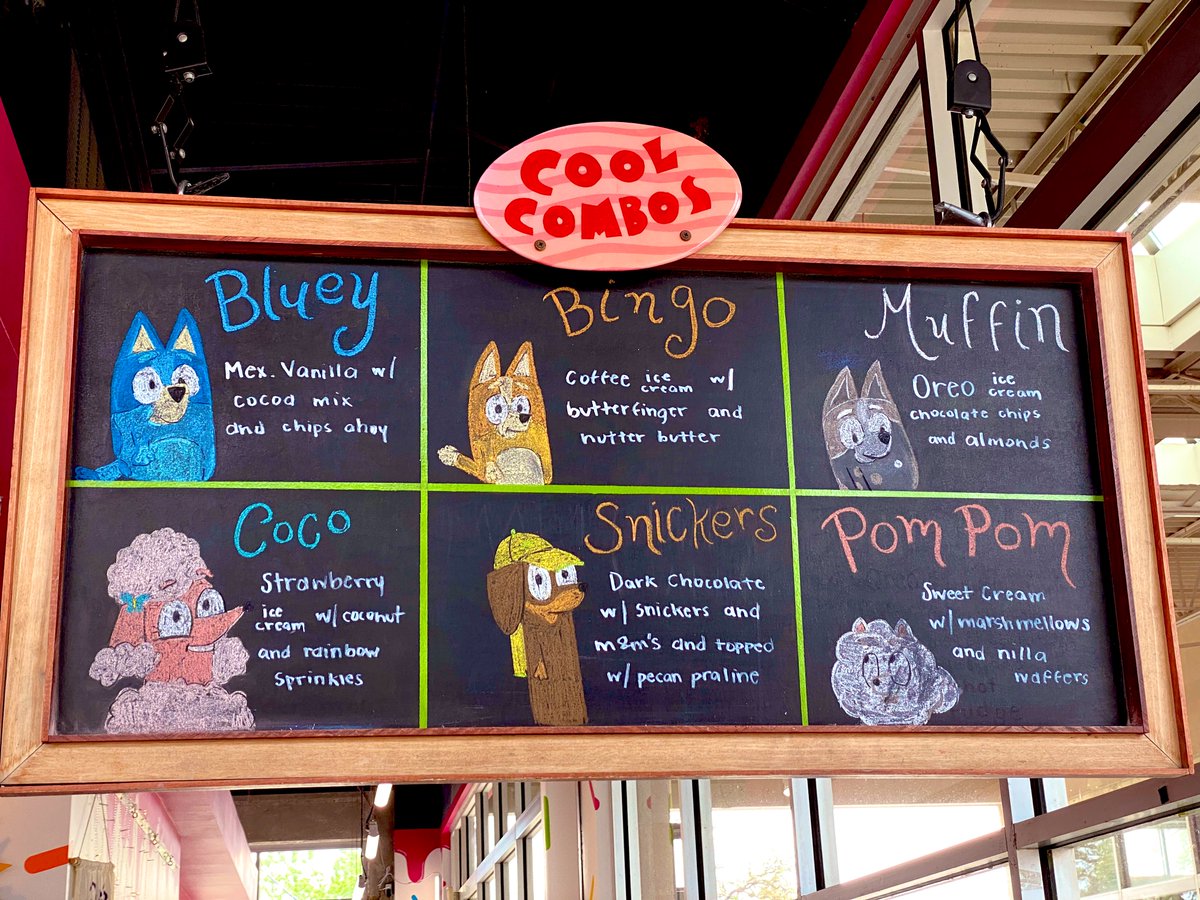 COOL
COMBOS
Bluey
Mex. Vanilla w/
cocoa mix
and chips ahoy
Bingo
Coffee ice cream w/
butterfinger and
nutter butter
Muffin
Oreo ice cream
chocolate chips
and almonds
Coco
Strawberry
ice cream w/ coconut
and rainbow
sprinkles
Snickers
Dark Chocolate
w/ snickers and
m&m's and topped
w/ pecan praline
Pom Pom
Sweet Cream
w/ marshmellows
and nilla
waffers